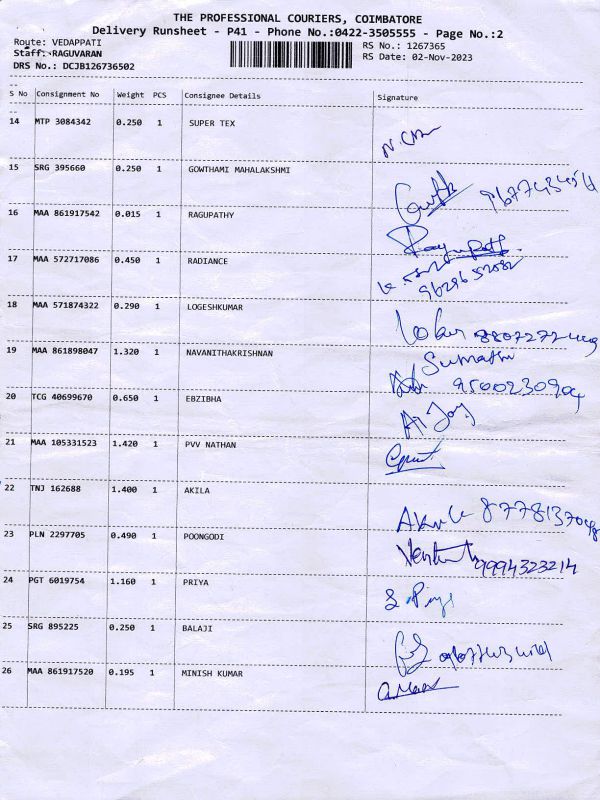 THE PROFESSIONAL COURIERS, COIMBATORE
Delivery Runsheet - P41 - Phone No.:0422-3505555 - Page No.:2
Route: VEDAPPATI RS No.: 1267365
Staff: RAGUVARAN RS Date: 02-Nov-2023
DRS No.: DCJB126736502
S No Consignment No Weight PCS Consignee Details Signature
14 MTP 3084342 0.250 1 SUPER TEX
15 SRG 395660 0.250 1 GOWTHAMI MAHALAKSHMI
16 MAA 861917542 0.015 1 RAGUPATHY
17 MAA 572717086 0.450 1 RADIANCE
9629652082
18 MAA 571874322 0.290 1 LOGESHKUMAR
19 MAA 861898047 1.320 1 NAVANITHAKRISHNAN Sumathi
9500230904
20 TCG 40699670 0.650 1 EBZIBHA
21 MAA 105331523 1.420 1 PVV NATHAN
22 TNJ 162688 1.400 1 AKILA
23 PLN 2297705 0.490 1 POONGODI 9994323214
24 PGT 6019754 1.160 1 PRIYA
25 SRG 895225 0.250 1 BALAJI
26 MAA 861917520 0.195 1 MINISH KUMAR